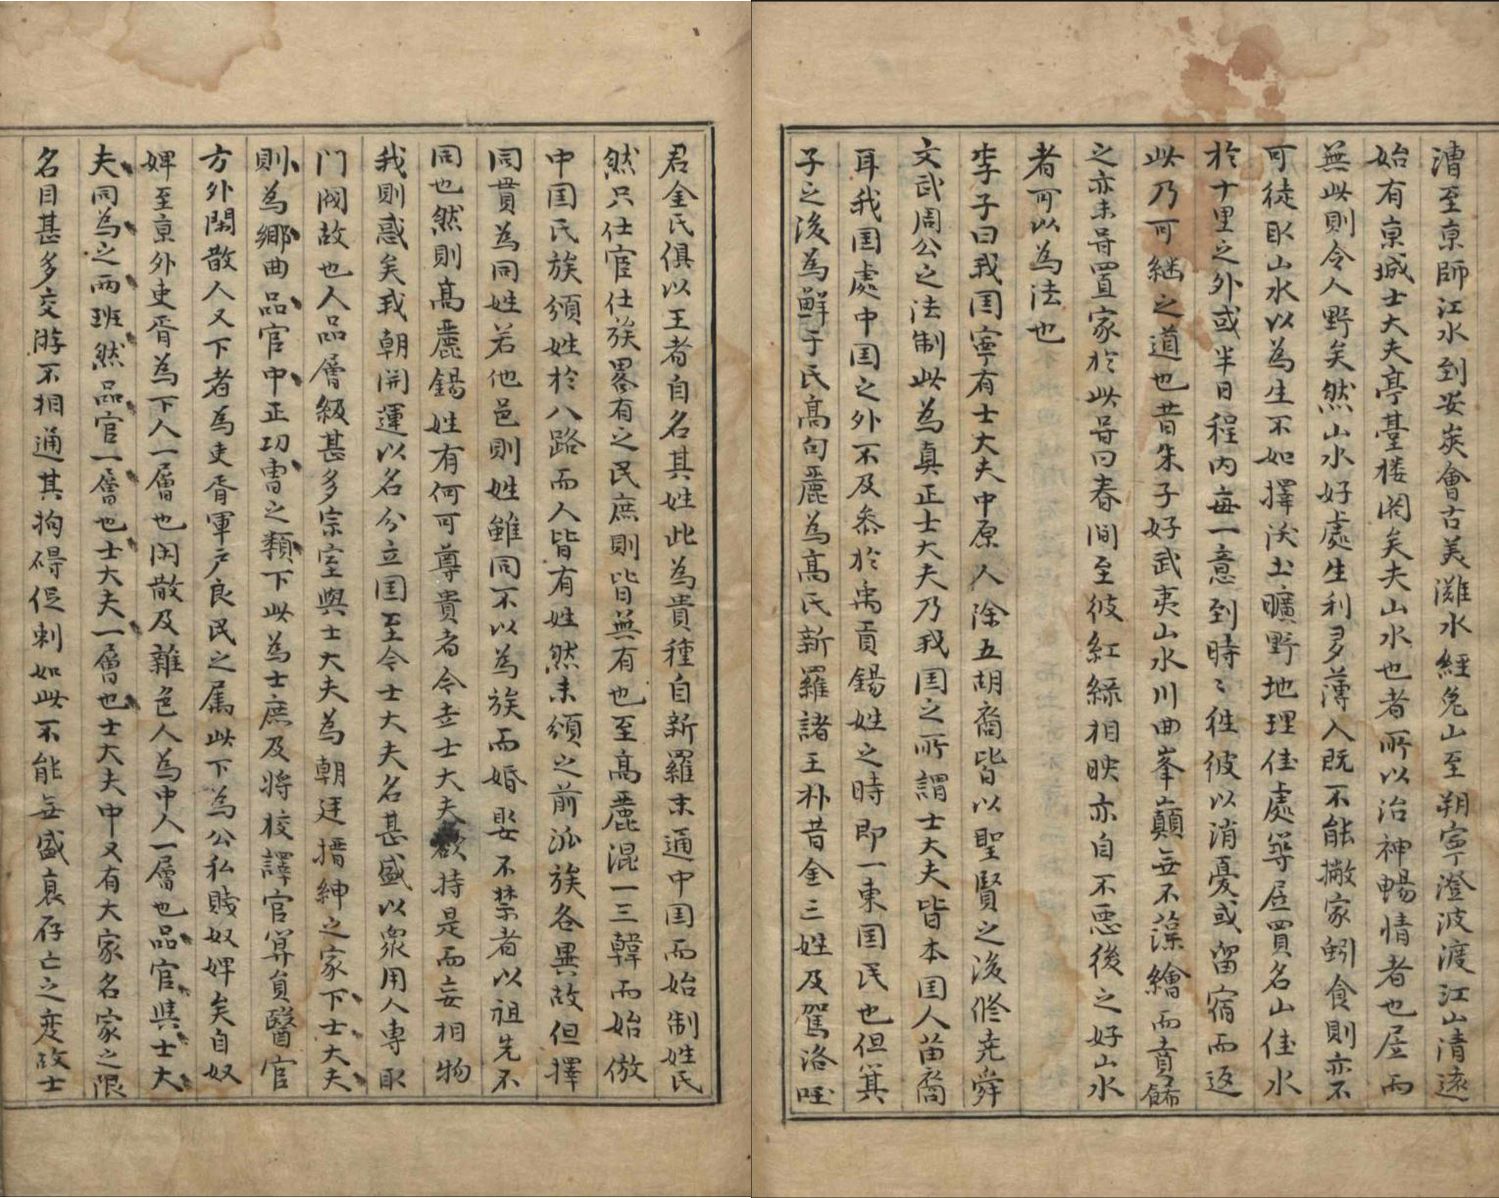 漕至京師江水到安炭會古美灘水經兔山至朔寧澄波渡江山清遠
始有京城士大夫亭臺楼閣矣夫山水也者所以治神暢情者也居而
無此則令人野矣然山水好處生利多薄人既不能撇家蚓食則亦不
可徒取山水以為生不如擇沃土曠野地理佳處筭居買名山佳水
於十里之外或半日程内每一意到時〻徃彼以消憂或留宿而返
此乃可継之道也昔朱子好武夷山水川曲峯巔無不藻繪而賁餙
之亦未甞置家於此甞曰春間至彼紅綠相映亦自不悪後之好山水
者可以為法也
李子曰我国寧有士大夫中原人除五胡裔皆以聖賢之後修尭舜
文武周公之法制此為真正士大夫乃我国之所謂士大夫皆本国人苗裔
耳我国處中国之外不及叅於禹貢錫姓之時即一東国民也但箕
子之後為鮮于氏高句麗為高氏新羅諸王朴昔金三姓及駕洛国
君金氏俱以王者自名其姓此為貴種自新羅末通中国而始制姓氏
然只仕宦仕族畧有之民庶則皆無有也至高麗混一三韓而始倣
中国氏族頒姓於八路而人皆有姓然未頒之前派族各異故但擇
同貫為同姓若他邑則姓雖同不以為族而婚娶不禁者以祖先不
同也然則高麗錫姓有何可尊貴者今士士大夫欲持是而妄相物
我則惑矣我朝開運以名分立国至今士大夫名甚盛以衆用人専取
门閥故也人品層級甚多宗室與士大夫為朝廷搢紳之家下士大夫
則為鄉曲品官中正功曺之類下此為士庶及将校譯官筭員醫官
方外閑散人又下者為吏胥軍戶良民之属此下為公私賎奴婢矣自奴
婢至京外吏胥為下人一層也閑散及雜色人為中人一層也品官與士大
夫同為之両班然品官一層也士大夫一層也士大夫中又有大家名家之限
名目甚多交游不相通其拘碍促刺如此不能無盛衰存亡之変故士